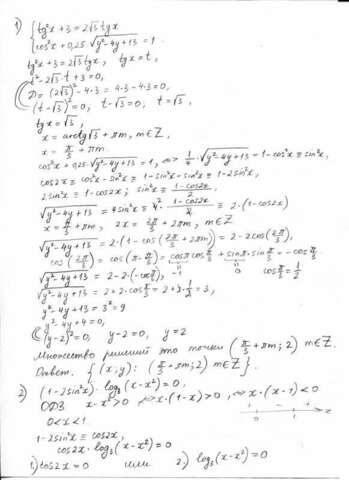 1) { tg²x + 3 = 2√3 tgx
cos²x + 0,25·√(y²-4y+13) = 1.
tg²x + 3 = 2√3 tgx, tgx = t,
t² - 2√3·t + 3 = 0,
D = (2√3)² - 4·3 = 4·3 - 4·3 = 0,
(t-√3)² = 0, t-√3 = 0; t = √3,
tgx = √3,
x = arctg√3 + πm, m∈Z,
x = π/3 + πm.
cos²x + 0,25·√(y²-4y+13) = 1, <=> 1/4·√(y²-4y+13) = 1-cos²x ≡ sin²x,
cos2x ≡ cos²x - sin²x ≡ 1 - sin²x - sin²x ≡ 1 - 2sin²x,
2sin²x ≡ 1 - cos2x; sin²x ≡ (1-cos2x)/2
√(y²-4y+13) = 4sin²x ≡ 4·(1-cos2x)/2 ≡ 2·(1-cos2x)
x = π/3 + πm, 2x = 2π/3 + 2πm, m∈Z
√(y²-4y+13) = 2·(1-cos(2π/3 + 2πm)) = 2 - 2cos(2π/3),
cos(2π/3) = cos(π-π/3) = cosπ·cosπ/3 + sinπ·sinπ/3 = -cosπ/3
-1 0
√(y²-4y+13) = 2-2·(-cosπ/3), cosπ/3 = 1/2
√(y²-4y+13) = 2+2·cosπ/3 = 2+2·1/2 = 3,
y²-4y+13 = 3² = 9
y²-4y+4 = 0,
(y-2)² = 0, y-2 = 0, y = 2
Множество решений это точки (π/3 + πm; 2) m∈Z.
Ответ. {(x; y): (π/3 + πm; 2) m∈Z}.
2) (1-2sin²x)·log₃(x-x²) = 0,
ОДЗ x-x² > 0, <=> x·(1-x) > 0, <=> x·(x-1) < 0
0 < x < 1 + - + x
0 1
1-2sin²x ≡ cos2x,
cos2x·log₃(x-x²) = 0
1.) cos2x = 0 или 2.) log₃(x-x²) = 0